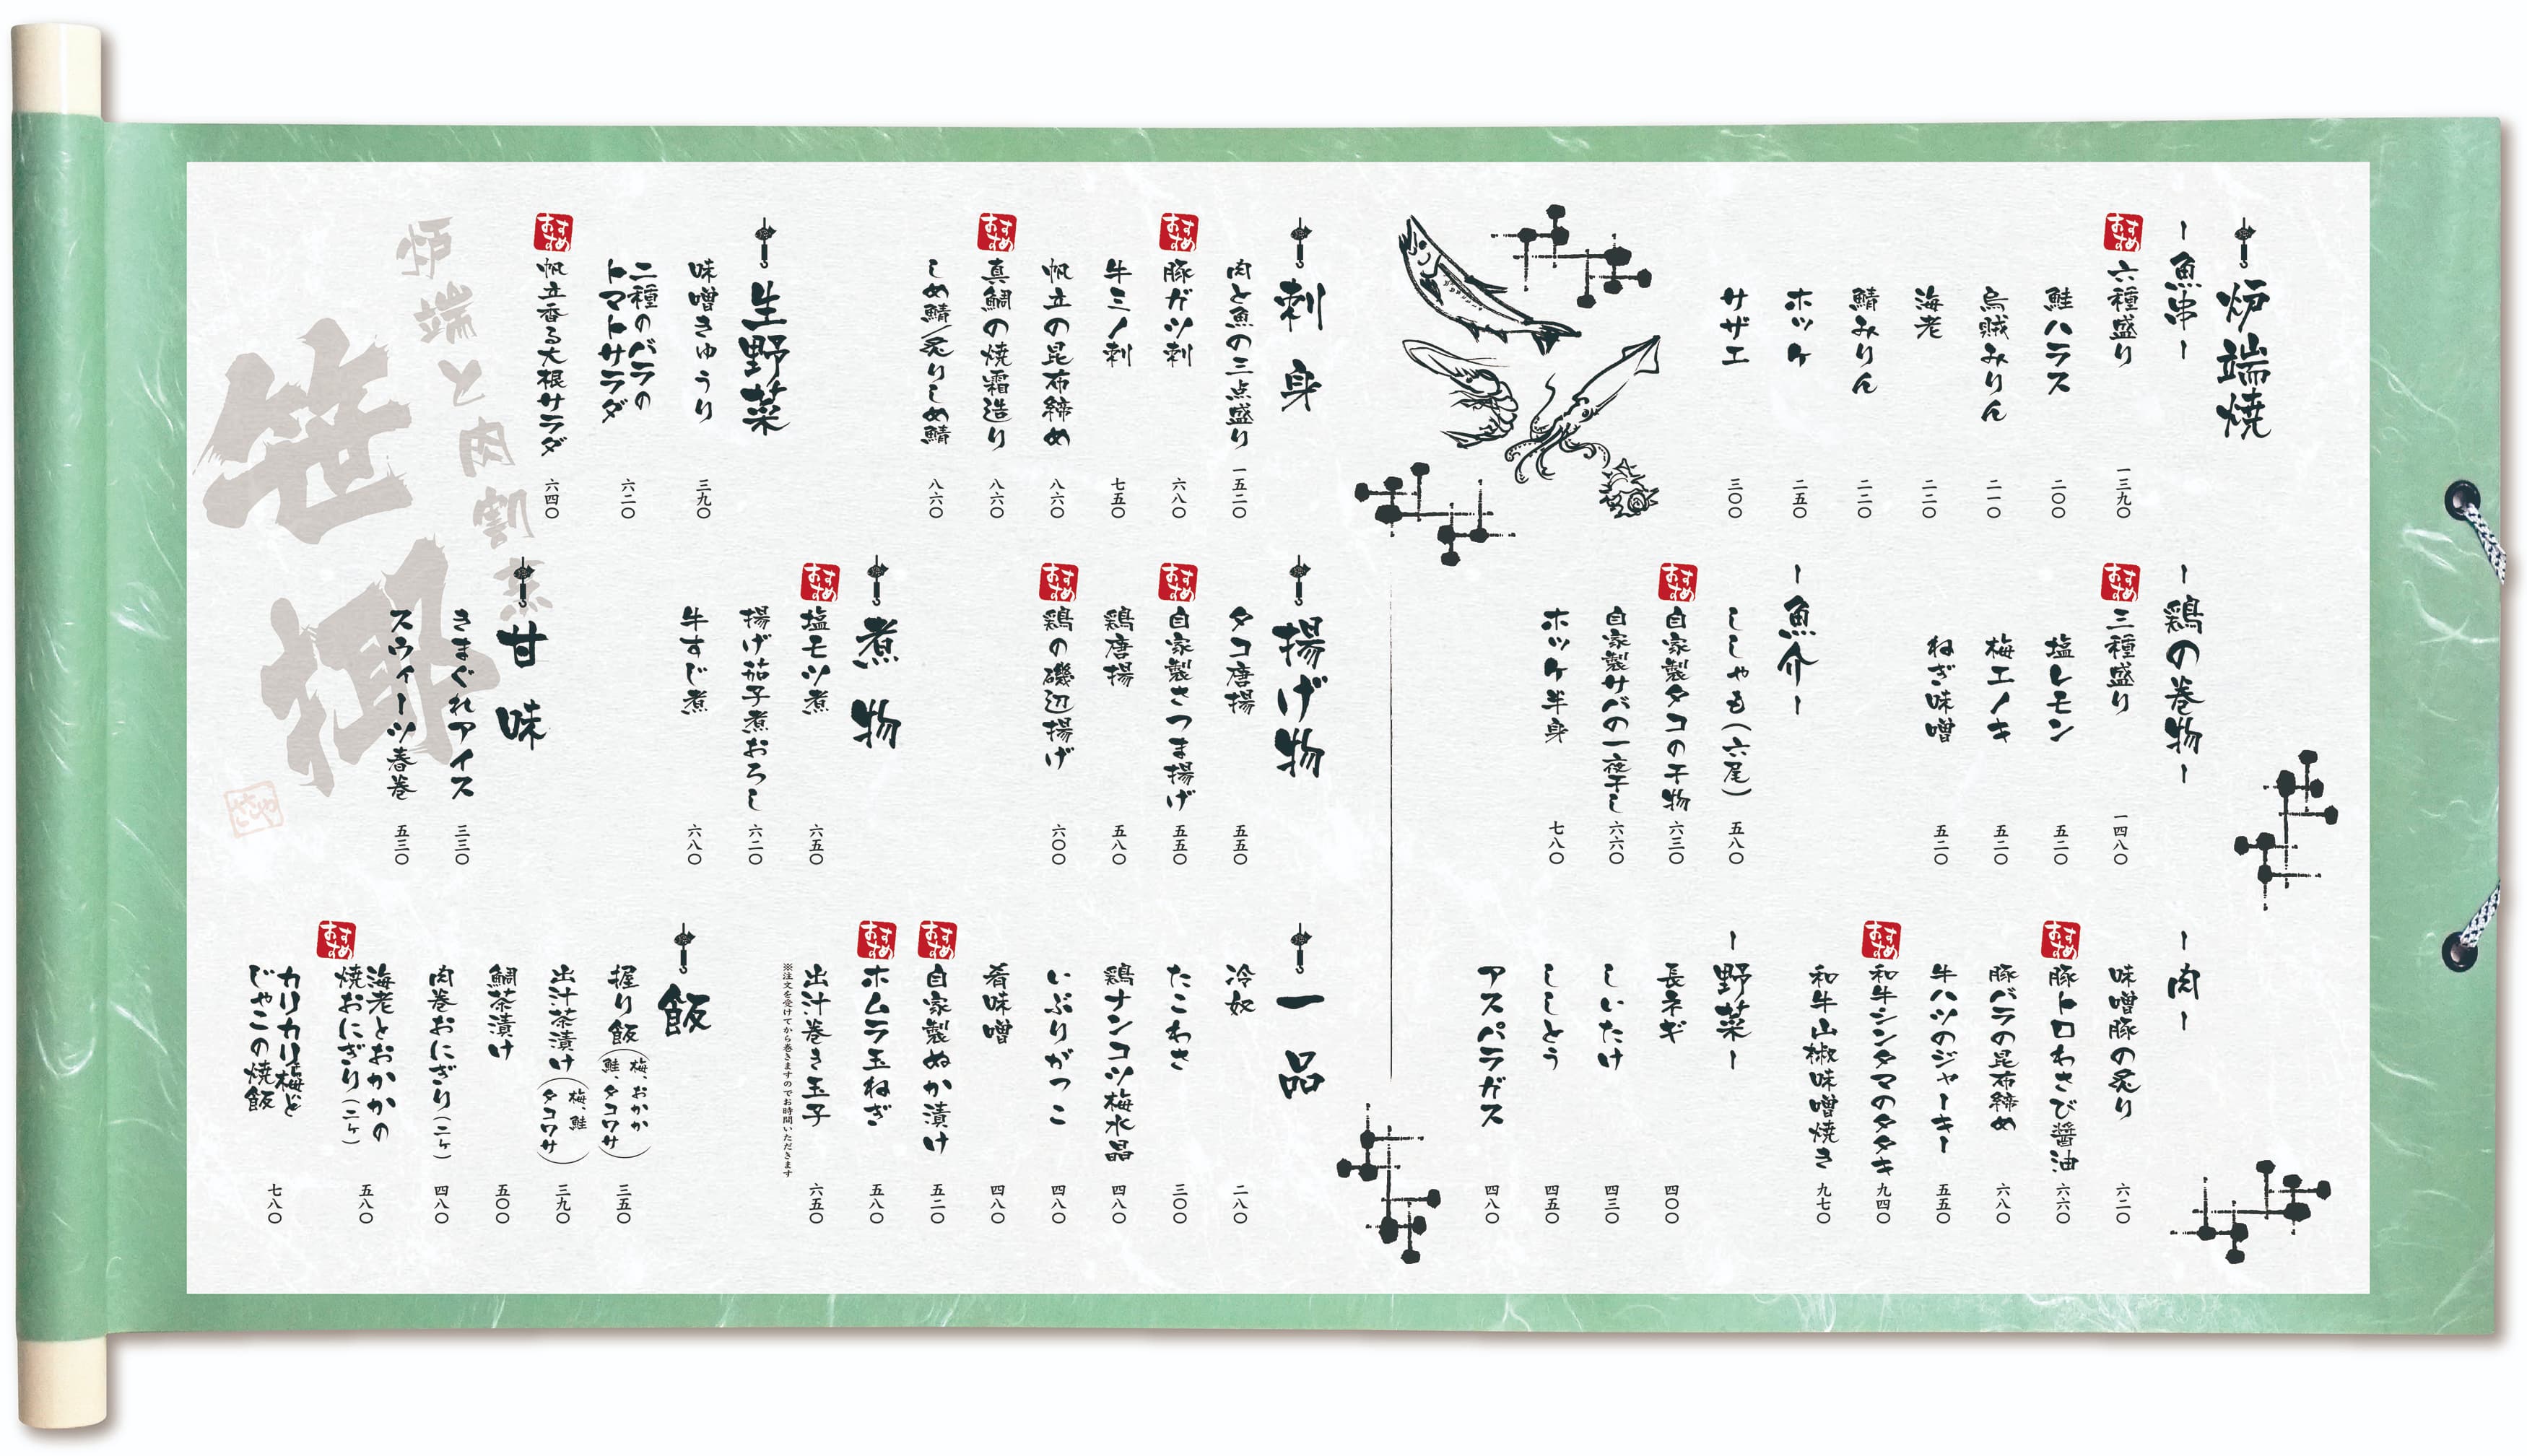 炉端焼
ー魚串ー
おすすめ
六種盛り 一三九〇
鮭ハラス 二〇〇
烏賊みりん 二一〇
海老 二二〇
鯖みりん 二二〇
ホッケ 二五〇
サザエ 三〇〇
ー鶏の巻物ー
おすすめ
三種盛り 一四八〇
塩レモン 五二〇
梅エノキ 五二〇
ねぎ味噌 五二〇
ー魚介ー
ししゃも(六尾) 五八〇
おすすめ
自家製タコの干物 六三〇
自家製サバの一夜干し 六六〇
ホッケ半身 七八〇
ー肉ー
味噌豚の炙り 六二〇
おすすめ
豚トロわさび醤油 六六〇
豚バラの昆布締め 六八〇
牛ハツのジャーキー 五五〇
おすすめ
和牛シンタマのタタキ 九四〇
和牛山椒味噌焼き 九七〇
ー野菜ー
長ネギ 四〇〇
しいたけ 四三〇
ししとう 四五〇
アスパラガス 四八〇
刺身
肉と魚の三点盛り 一五二〇
おすすめ
豚ガツ刺 六八〇
牛ミノ刺 七五〇
帆立の昆布締め 八六〇
おすすめ
真鯛の焼霜造り 八六〇
しめ鯖/炙りしめ鯖 八六〇
生野菜
味噌きゅうり 三九〇
二種のバラの
トマトサラダ 六二〇
おすすめ
帆立香る大根サラダ 六四〇
揚げ物
タコ唐揚 五五〇
おすすめ
自家製さつま揚げ 五五〇
鶏唐揚 五八〇
おすすめ
鶏の磯辺揚げ 六〇〇
煮物
おすすめ
塩モツ煮 六五〇
揚げ茄子煮おろし 六二〇
牛すじ煮 六八〇
甘味
きまぐれアイス 三三〇
スウィーツ春巻 五三〇
一品
冷奴 二八〇
たこわさ 三〇〇
鶏ナンコツ梅水晶 四八〇
いぶりがっこ 四八〇
肴味噌 四八〇
おすすめ
自家製ぬか漬け 五二〇
おすすめ
ホムラ玉ねぎ 五八〇
出汁巻き玉子 六五〇
※注文を受けてから巻きますのでお時間いただきます
飯
握り飯(梅、おかか 鮭、タコワサ) 三五〇
出汁茶漬け(梅、鮭 タコワサ) 三九〇
鯛茶漬け 五〇〇
肉巻おにぎり(二ヶ) 四八〇
おすすめ
海老とおかかの
焼おにぎり(二ヶ) 五八〇
カリカリ梅と
じゃこの焼飯 七八〇
炉端と肉割烹
笹掛
ささや